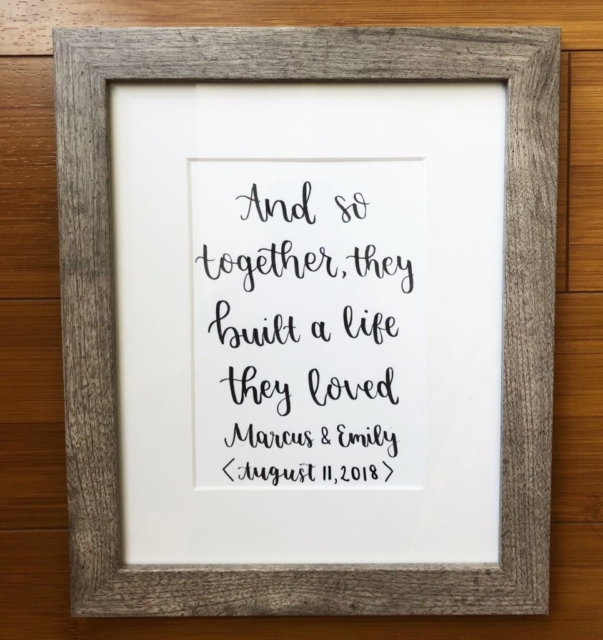 And so
together, they
built a life
they loved
Marcus & Emily
<August 11, 2018>